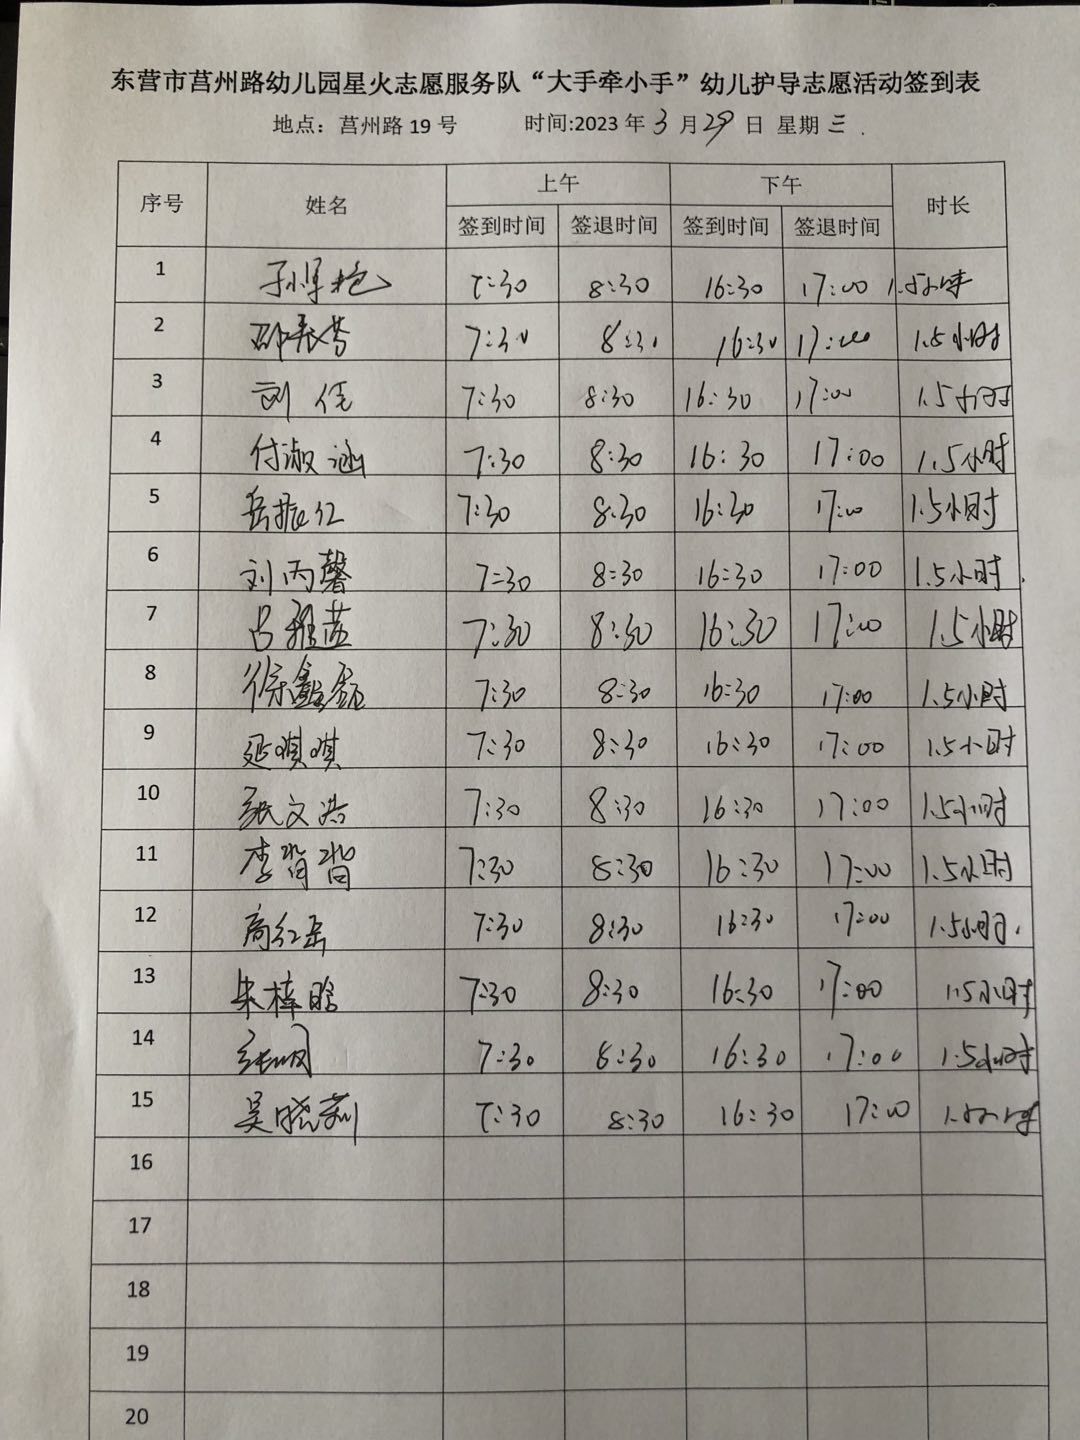 东营市莒州路幼儿园星火志愿服务队“大手牵小手”幼儿护导志愿活动签到表
地点：莒州路 19 号 时间:2023 年 3 月 29 日 星期 三 .
序号 姓名 上午 下午 时长
签到时间 签退时间 签到时间 签退时间
1 7:30 8:30 16:30 17:00 1.5小时
2 邵长芳 7:30 8:30 16:30 17:00 1.5小时
3 刘佳 7:30 8:30 16:30 17:00 1.5小时
4 付淑涵 7:30 8:30 16:30 17:00 1.5小时
5 岳振仁 7:30 8:30 16:30 17:00 1.5小时
6 刘丙馨 7:30 8:30 16:30 17:00 1.5小时.
7 吕雅蓝 7:30 8:30 16:30 17:00 1.5小时
8 徐鑫 7:30 8:30 16:30 17:00 1.5小时
9 延琪琪 7:30 8:30 16:30 17:00 1.5小时
10 张文浩 7:30 8:30 16:30 17:00 1.5小时
11 李 7:30 8:30 16:30 17:00 1.5小时
12 商红岳 7:30 8:30 16:30 17:00 1.5小时.
13 朱梓晗 7:30 8:30 16:30 17:00 1.5小时
14 张 7:30 8:30 16:30 17:00 1.5小时
15 吴晓莉 7:30 8:30 16:30 17:00 1.5小时
16
17
18
19
20